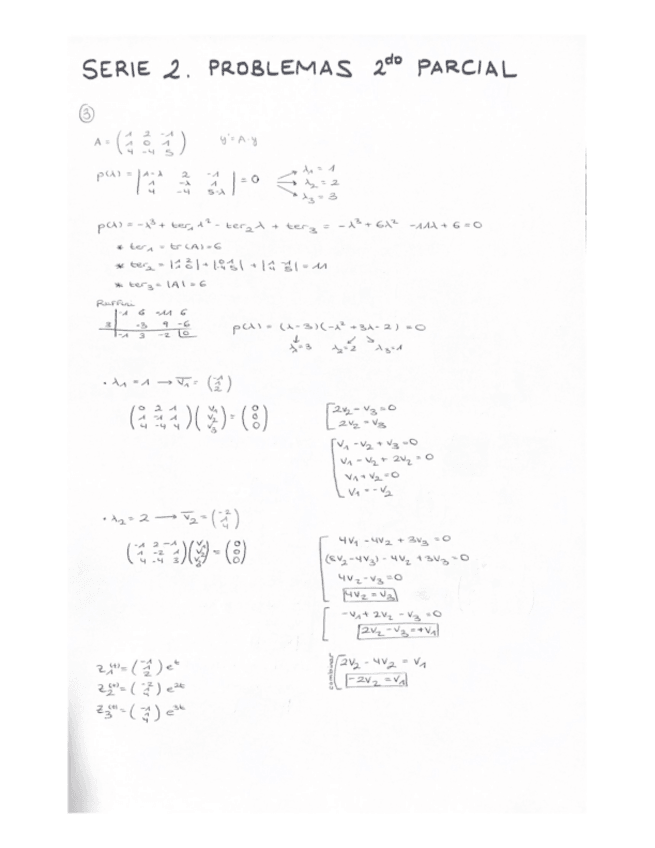 SERIE 2. PROBLEMAS 2do PARCIAL
③
A = (1 2 -1; 1 0 1; 4 -4 5) y' = A·y
p(λ) = |1-λ 2 -1; 1 -λ 1; 4 -4 5-λ| = 0 λ₁ = 1 λ₂ = 2 λ₃ = 3
p(λ) = -λ³ + ter₁ λ² - ter₂ λ + ter₃ = -λ³ + 6λ² -11λ + 6 = 0
* ter₁ = tr(A) = 6
* ter₂ = |1 2; 1 0| + |0 1; -4 5| + |1 -1; 4 5| = 11
* ter₃ = |A| = 6
Ruffini
-1 6 -11 6
3 -3 9 -6
-1 3 -2 0
p(λ) = (λ-3)(-λ² + 3λ - 2) = 0
λ=3 λ₂=2 λ₃=1
· λ₁ = 1 → v₁ = (-1; 1; 2)
(0 2 1; 1 -1 1; 4 -4 4)(v₁; v₂; v₃) = (0; 0; 0)
2v₂ - v₃ = 0
2v₂ = v₃
v₁ - v₂ + v₃ = 0
v₁ - v₂ + 2v₂ = 0
v₁ + v₂ = 0
v₁ = -v₂
· λ₂ = 2 → v₂ = (-2; 1; 4)
(-1 2 -1; 1 -2 1; 4 -4 3)(v₁; v₂; v₃) = (0; 0; 0)
4v₁ - 4v₂ + 3v₃ = 0
(8v₂ - 4v₃) - 4v₂ + 3v₃ = 0
4v₂ - v₃ = 0
4v₂ = v₃
-v₁ + 2v₂ - v₃ = 0
2v₂ - v₃ = +v₁
combinar
2v₂ - 4v₂ = v₁
-2v₂ = v₁
Z₁(t) = (-1; 1; 2) eᵗ
Z₂(t) = (-2; 1; 4) e²ᵗ
Z₃(t) = (-1; 1; 4) e³ᵗ